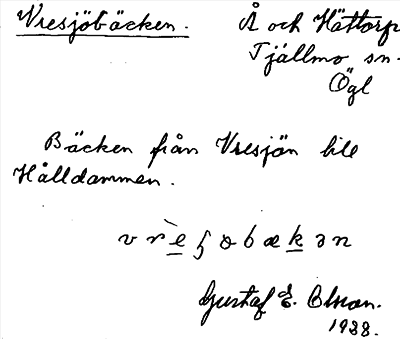 Vresjöbäcken. Å och Hättorp
Tjällmo sn.
Ögl
Bäcken från Vresjön till
Hålldammen.
Gustaf E. Olsson.
1938.